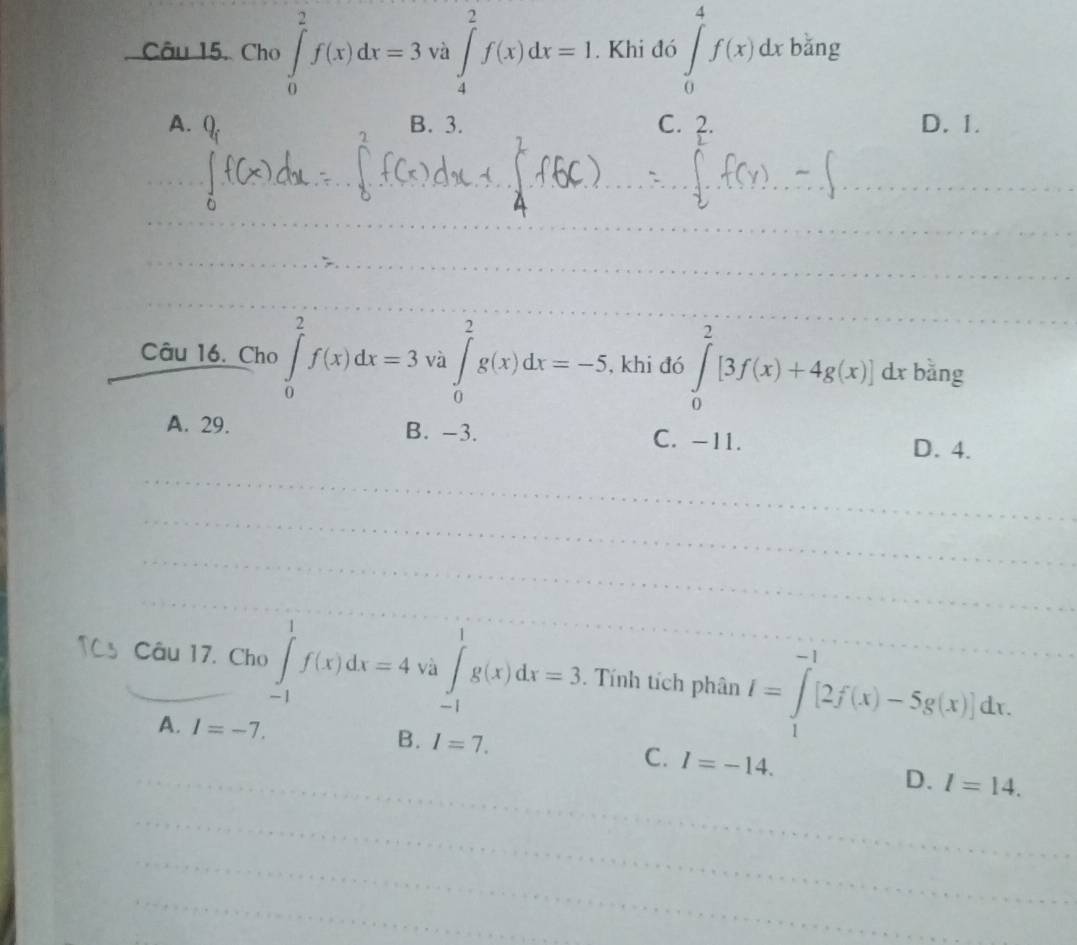 Câu 15. Cho ∫₀² f(x) dx = 3 và ∫₄² f(x) dx = 1. Khi đó ∫₀⁴ f(x) dx bằng
A. 0, B. 3. C. 2. D. 1.
∫₀ f(x) dx = ∫₀² f(x) dx + ∫₄² f(x) = ∫₂² f(x) - ∫
=
Câu 16. Cho ∫₀² f(x) dx = 3 và ∫₀² g(x) dx = −5, khi đó ∫₀² [3f(x) + 4g(x)] dx bằng
A. 29. B. −3. C. −11. D. 4.
TC5 Câu 17. Cho ∫₋₁¹ f(x) dx = 4 và ∫₋₁¹ g(x) dx = 3. Tính tích phân I = ∫₁⁻¹ [2f(x) − 5g(x)] dx.
A. I = −7. B. I = 7. C. I = −14. D. I = 14.